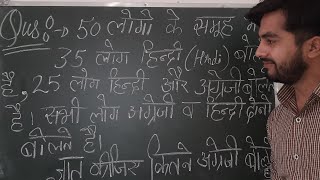 Qus:→ 50 लोगो के समूह में
35 लोग हिन्दी (Hindi) बो
है, 25 लोग हिन्दी और अंग्रेजी बोल
है। सभी लोग अंग्रेजी व हिन्दी दोनो
बोलते हैं।
ज्ञात कीजिए कितने अंग्रेजी बो